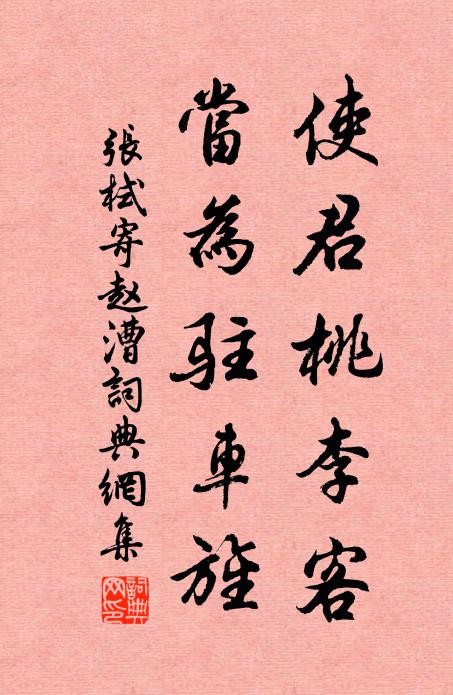 使君桃李客
當為駐車旌
張栻寄赵漕詞典網集
詞典网印